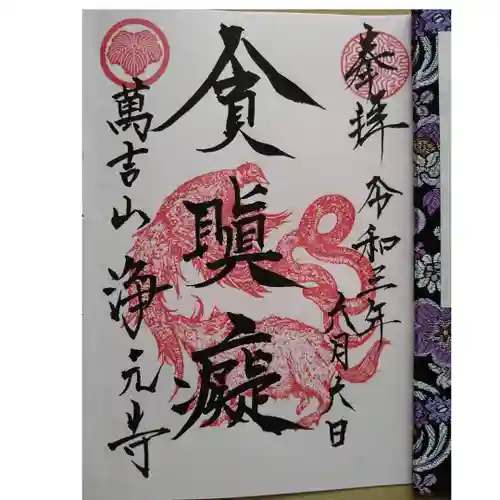 奉拝
令和三年
六月六日
貪瞋癡
萬吉山
浄元寺